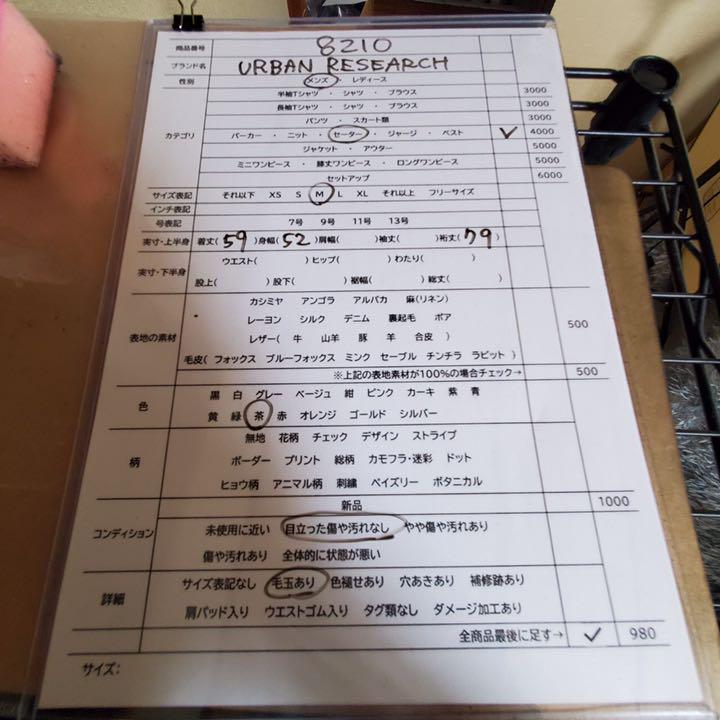 商品番号 8210
ブランド名 URBAN RESEARCH
性別 メンズ ・ レディース
半袖Tシャツ ・ シャツ ・ ブラウス 3000
長袖Tシャツ ・ シャツ ・ ブラウス 3000
パンツ ・ スカート類 3000
カテゴリ パーカー ・ ニット ・ セーター ・ ジャージ ・ ベスト ✓ 4000
ジャケット ・ アウター 5000
ミニワンピース ・ 膝丈ワンピース ・ ロングワンピース 5000
セットアップ 6000
サイズ表記 それ以下 XS S M L XL それ以上 フリーサイズ
インチ表記
号表記 7号 9号 11号 13号
実寸・上半身 着丈(59)身幅(52)肩幅( )袖丈( )裄丈(79
実寸・下半身 ウエスト( )ヒップ( )わたり( )
股上( )股下( )裾幅( )総丈( )
カシミヤ アンゴラ アルパカ 麻(リネン)
レーヨン シルク デニム 裏起毛 ボア 500
表地の素材 レザー( 牛 山羊 豚 羊 合皮 )
毛皮( フォックス ブルーフォックス ミンク セーブル チンチラ ラビット )
※上記の表地素材が100%の場合チェック→ 500
色 黒 白 グレー ベージュ 紺 ピンク カーキ 紫 青
黄 緑 茶 赤 オレンジ ゴールド シルバー
無地 花柄 チェック デザイン ストライプ
柄 ボーダー プリント 総柄 カモフラ・迷彩 ドット
ヒョウ柄 アニマル柄 刺繍 ペイズリー ボタニカル
新品 1000
コンディション 未使用に近い 目立った傷や汚れなし やや傷や汚れあり
傷や汚れあり 全体的に状態が悪い
詳細 サイズ表記なし 毛玉あり 色褪せあり 穴あきあり 補修跡あり
肩パッド入り ウエストゴム入り タグ類なし ダメージ加工あり
全商品最後に足す→ ✓ 980
サイズ：